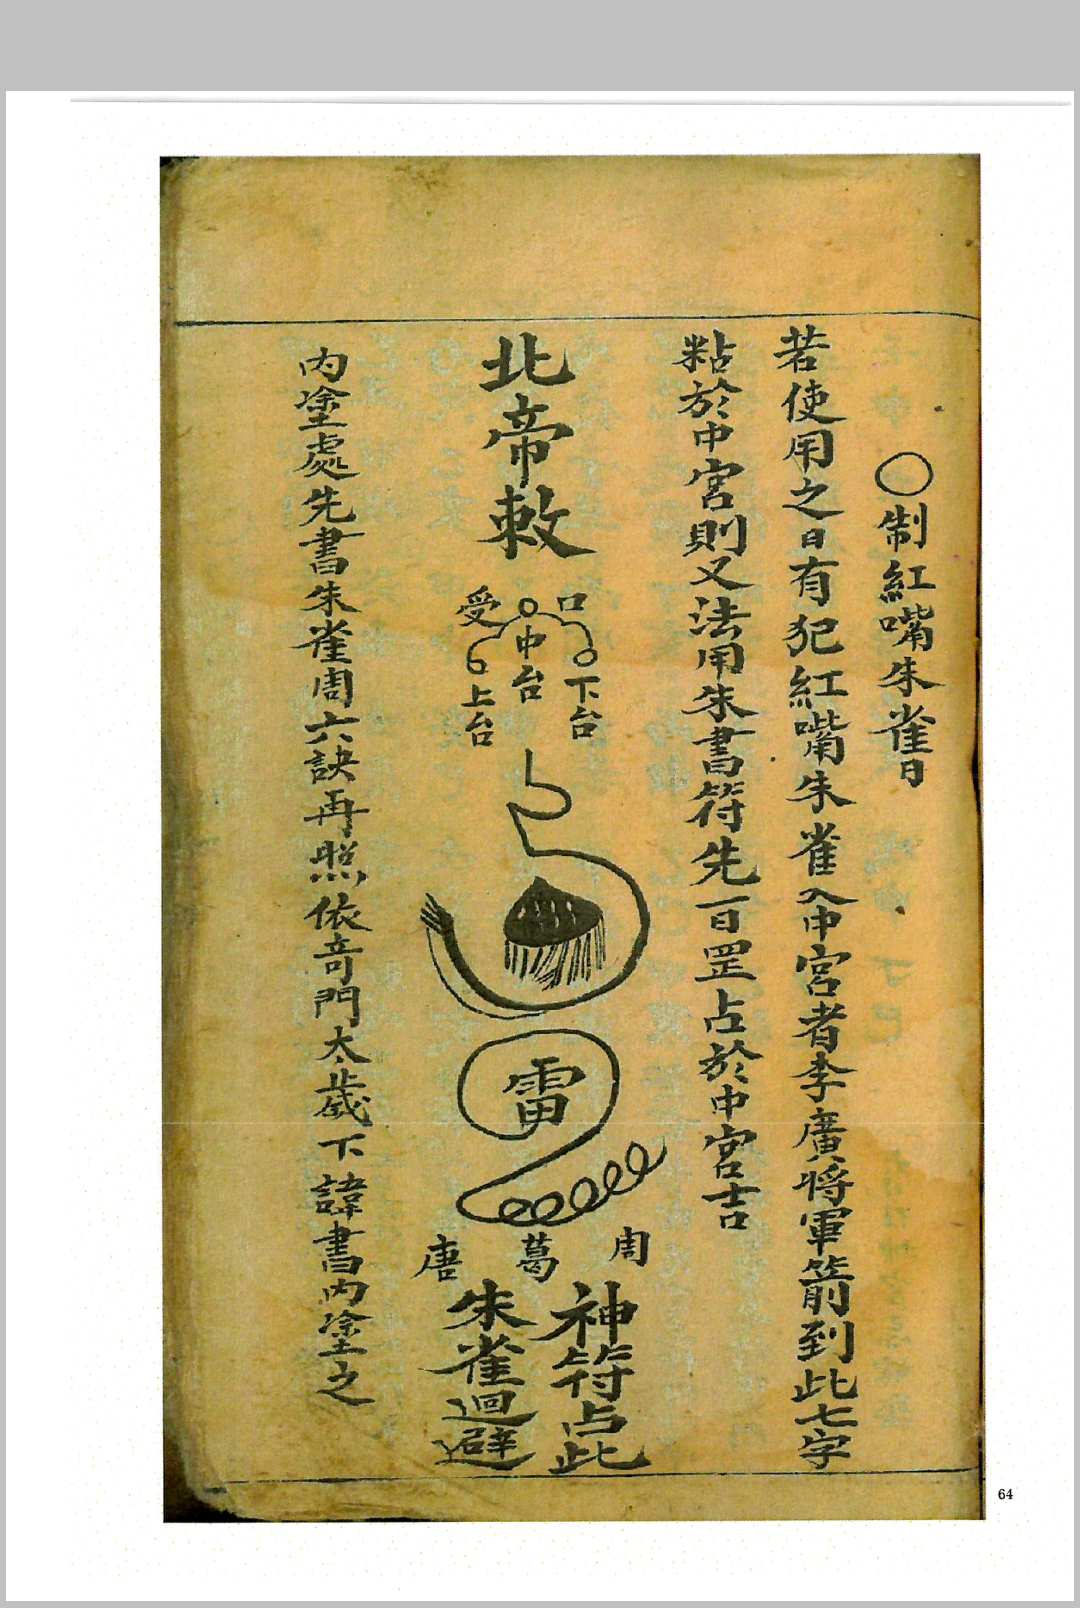 ○制紅嘴朱雀日
若使用之日有犯紅嘴朱雀入中宮者李廣將軍箭到此七字
粘於中宮則又法用朱書符先一日罡占於中宮吉
北帝敕
受
口
中台
上台
下台
雷
唐 葛 周
神符占此
朱雀迴避
內塗處先書朱雀周六訣再照依奇門太歲下諱書內塗之
64